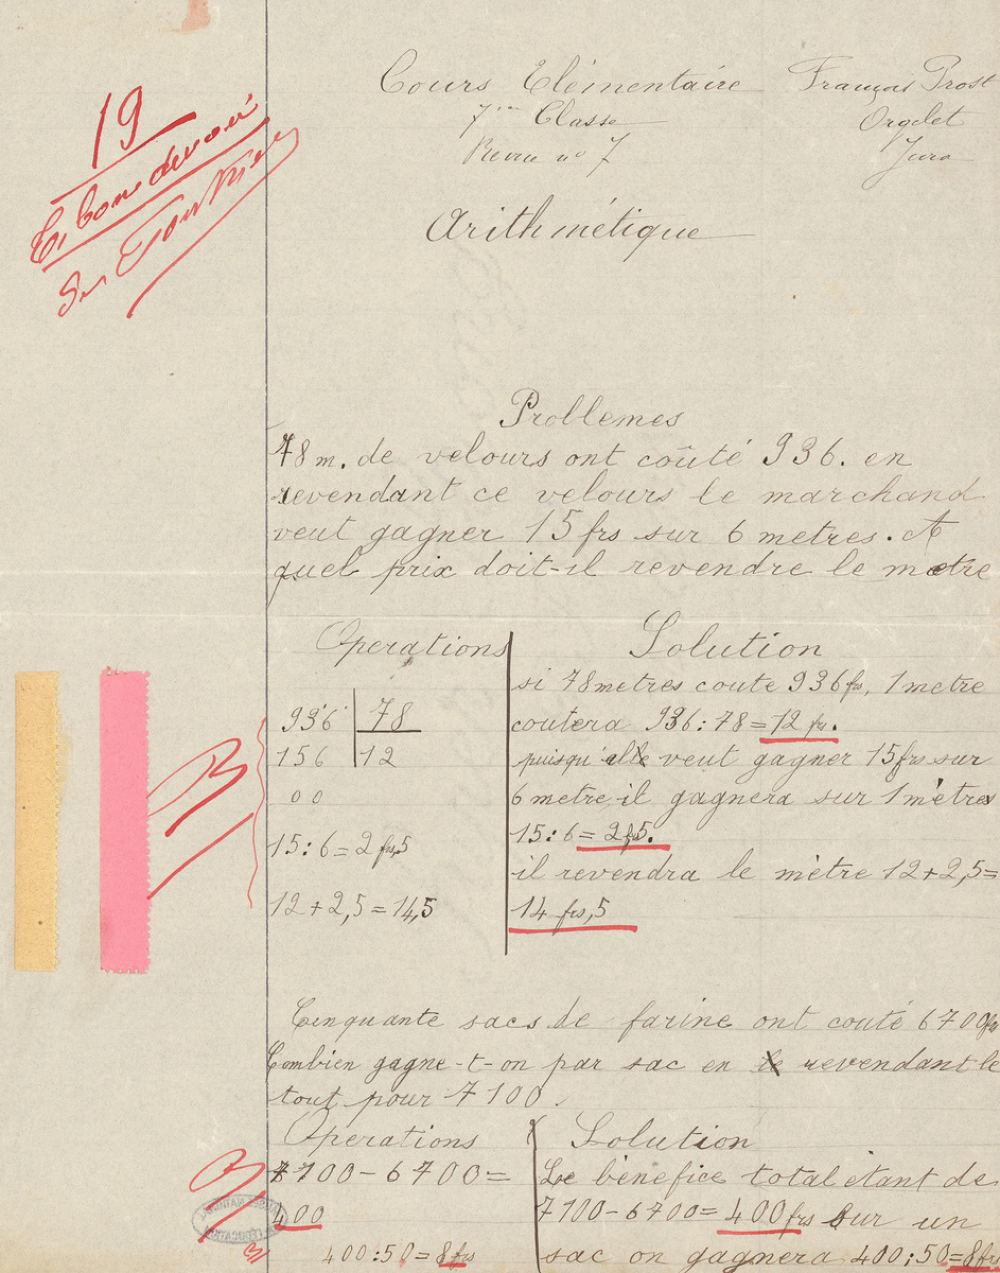 19
bon devoir
Cours Elémentaire
7me Classe
Revue no 7
François Prost
Orgelet
Jura
Arithmétique
Problemes
78 m. de velours ont coûté 936. en
revendant ce velours le marchand
veut gagner 15 frs sur 6 metres. A
quel prix doit-il revendre le metre
Operations
936 78
156 12
00
15 : 6 = 2 frs,5
12 + 2,5 = 14,5
Solution
si 78 metres coute 936 frs, 1 metre
coutera 936 : 78 = 12 fr.
puisqu'elle veut gagner 15 frs sur
6 metre il gagnera sur 1 mètres
15 : 6 = 2 f 5.
il revendra le mètre 12 + 2,5 =
14 frs,5
B
Cenquante sacs de farine ont couté 6700 frs
Combien gagne-t-on par sac en le revendant le
tout pour 7100.
Operations
7100 - 6700 =
400
400 : 50 = 8 frs
Solution
Le bénéfice total étant de
7100 - 6700 = 400 frs sur un
sac on gagnera 400 : 50 = 8 frs
B
B